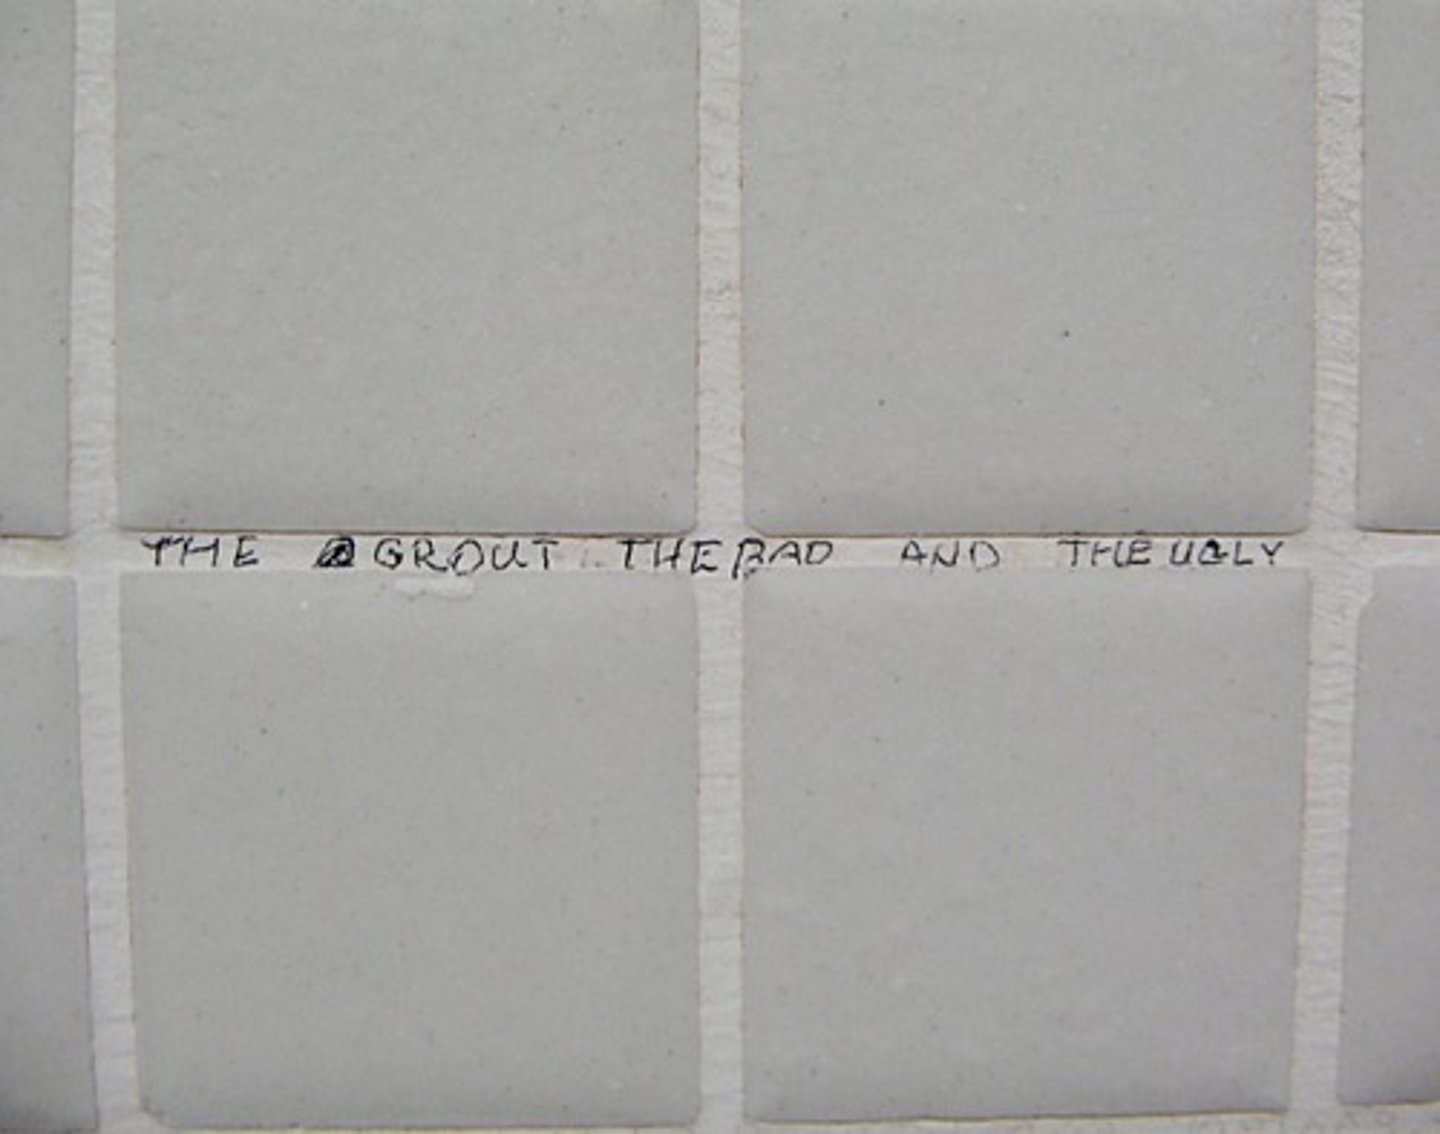 THE GROUT THE BAD AND THE UGLY